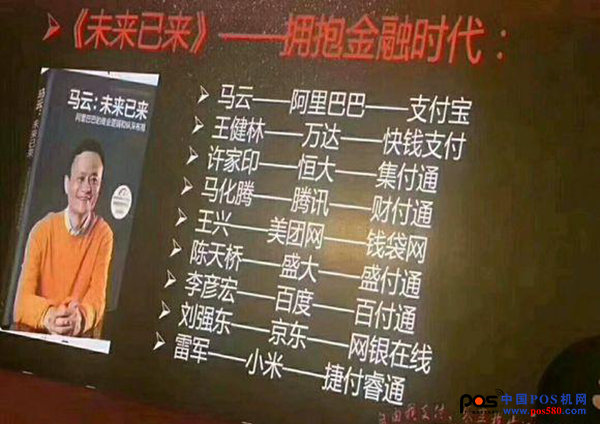 《未来已来》——拥抱金融时代：
马云：未来已来
阿里巴巴的商业逻辑和纵深布局
马云——阿里巴巴——支付宝
王健林——万达——快钱支付
许家印——恒大——集付通
马化腾——腾讯——财付通
王兴——美团网——钱袋网
陈天桥——盛大——盛付通
李彦宏——百度——百付通
刘强东——京东——网银在线
雷军——小米——捷付睿通
pos 中国POS机网
www.pos580.com